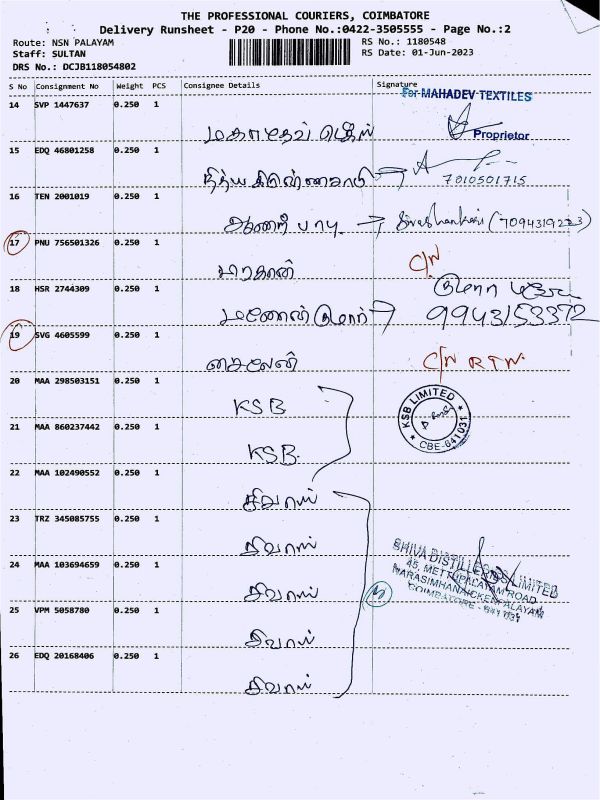 THE PROFESSIONAL COURIERS, COIMBATORE
Delivery Runsheet - P20 - Phone No.:0422-3505555 - Page No.:2
Route: NSN PALAYAM
RS No.: 1180548
Staff: SULTAN
RS Date: 01-Jun-2023
DRS No.: DCJB118054802
S No Consignment No Weight PCS Consignee Details Signature
For MAHADEV TEXTILES
14 SVP 1447637 0.250 1
மகாதேவ் டெக்ஸ்
Proprietor
15 EDQ 46801258 0.250 1
7010501715
16 TEN 2001019 0.250 1
பாபு → Sivashankari (7094319223)
17 PNU 756501326 0.250 1
C/N
18 HSR 2744309 0.250 1
மனோஜ் குமார்
9943153372
19 SVG 4605599 0.250 1
C/N RTN
20 MAA 298503151 0.250 1
KSB
KSB LIMITED
CBE-641031
21 MAA 860237442 0.250 1
KSB
22 MAA 102490552 0.250 1
சிவாஸ்
23 TRZ 345085755 0.250 1
சிவாஸ்
SHIVA DISTILLERIES LIMITED
24 MAA 103694659 0.250 1
45, METTUPALAYAM ROAD
சிவாஸ்
NARASIMHANAICKENPALAYAM
COIMBATORE - 641 031
25 VPM 5058780 0.250 1
சிவாஸ்
26 EDQ 20168406 0.250 1
சிவாஸ்